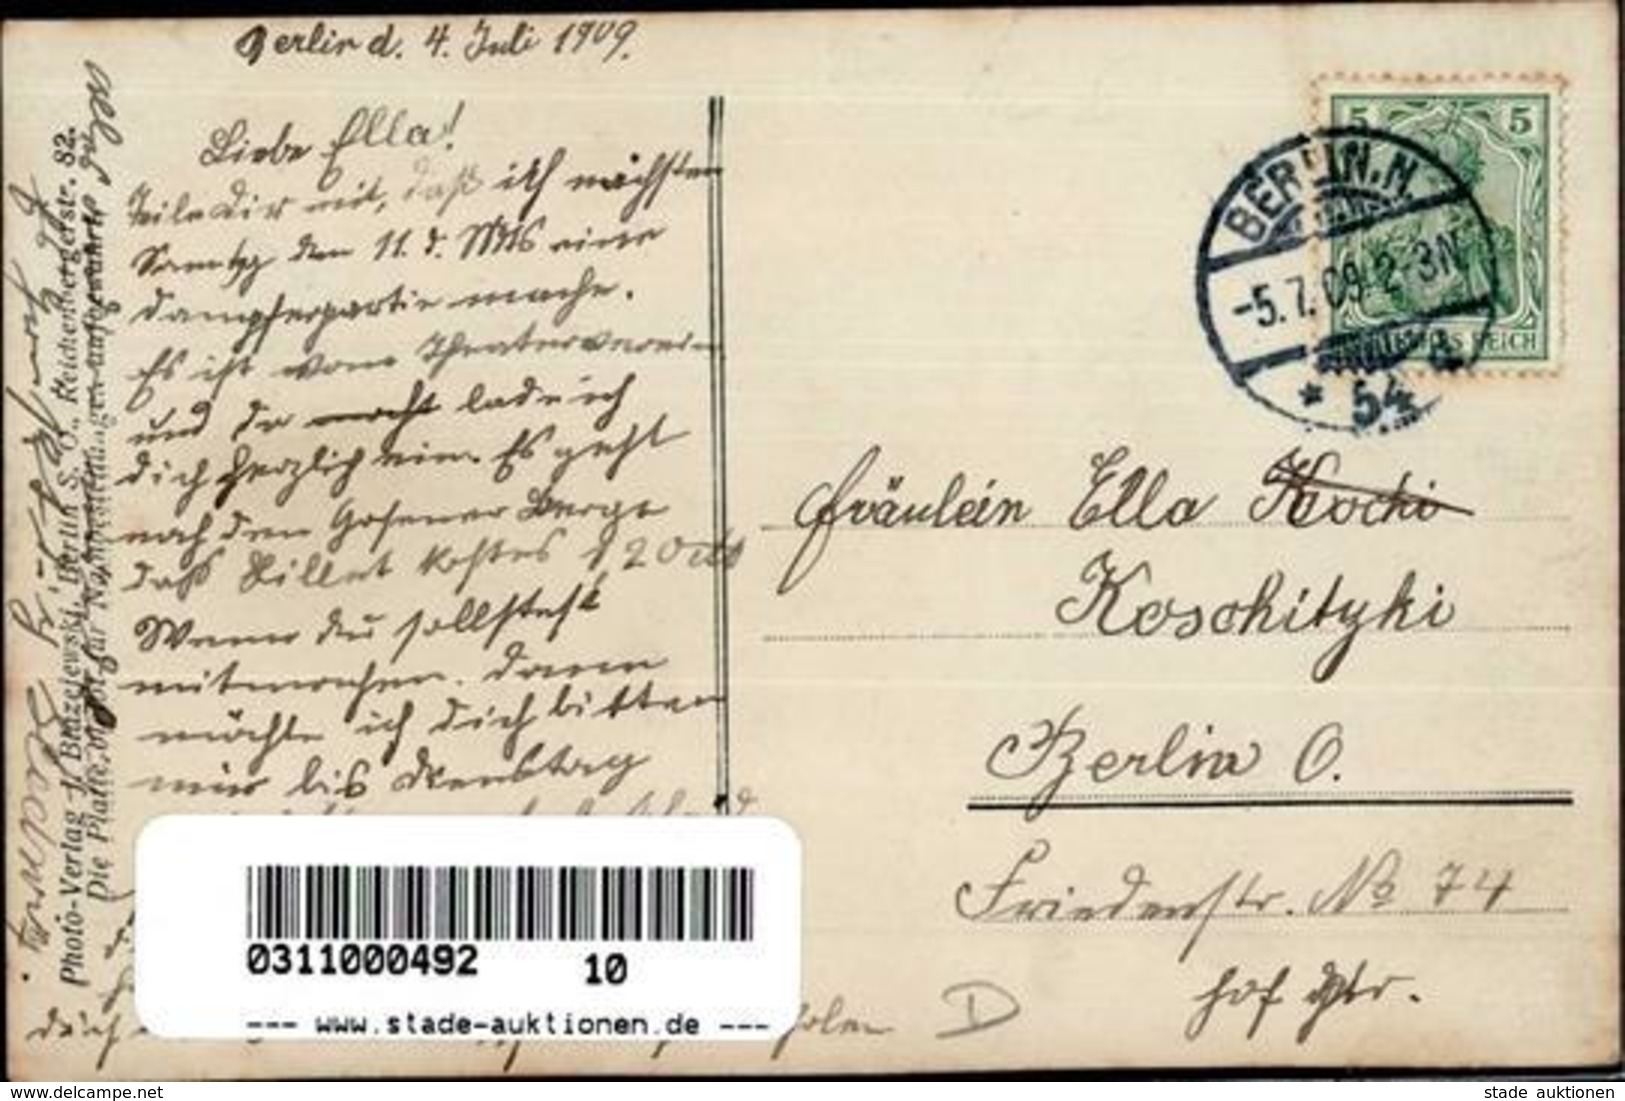 Berlin d. 4. Juli 1909.
Liebe Ella!
Teile Dir mit, daß ich nächsten
den 11. d. Mts eine
Dampferpartie mache.
Es ist vom Theaterverein
und da lade ich
Dich herzlich ein. Es geht
nach den Gosener Berge
daß Billet kostet 1,20
Wenn du solltest
mitmachen. Dann
möchte ich Dich bitten
mir bis Dienstag
holen
Photo-Verlag J. Blazejewski, Berlin S. O., Reichenbergerstr. 82.
Die Platte für Nachbestellungen aufbewahrt
5 5
BERLIN.N.
-5.7.09.2-3N
* 54
REICH
Fräulein Ella
Koschitzki
Berlin O.
Friedenstr. No 74
hof
D
0311000492 10
--- www.stade-auktionen.de ---
www.delcampe.net
stade auktionen